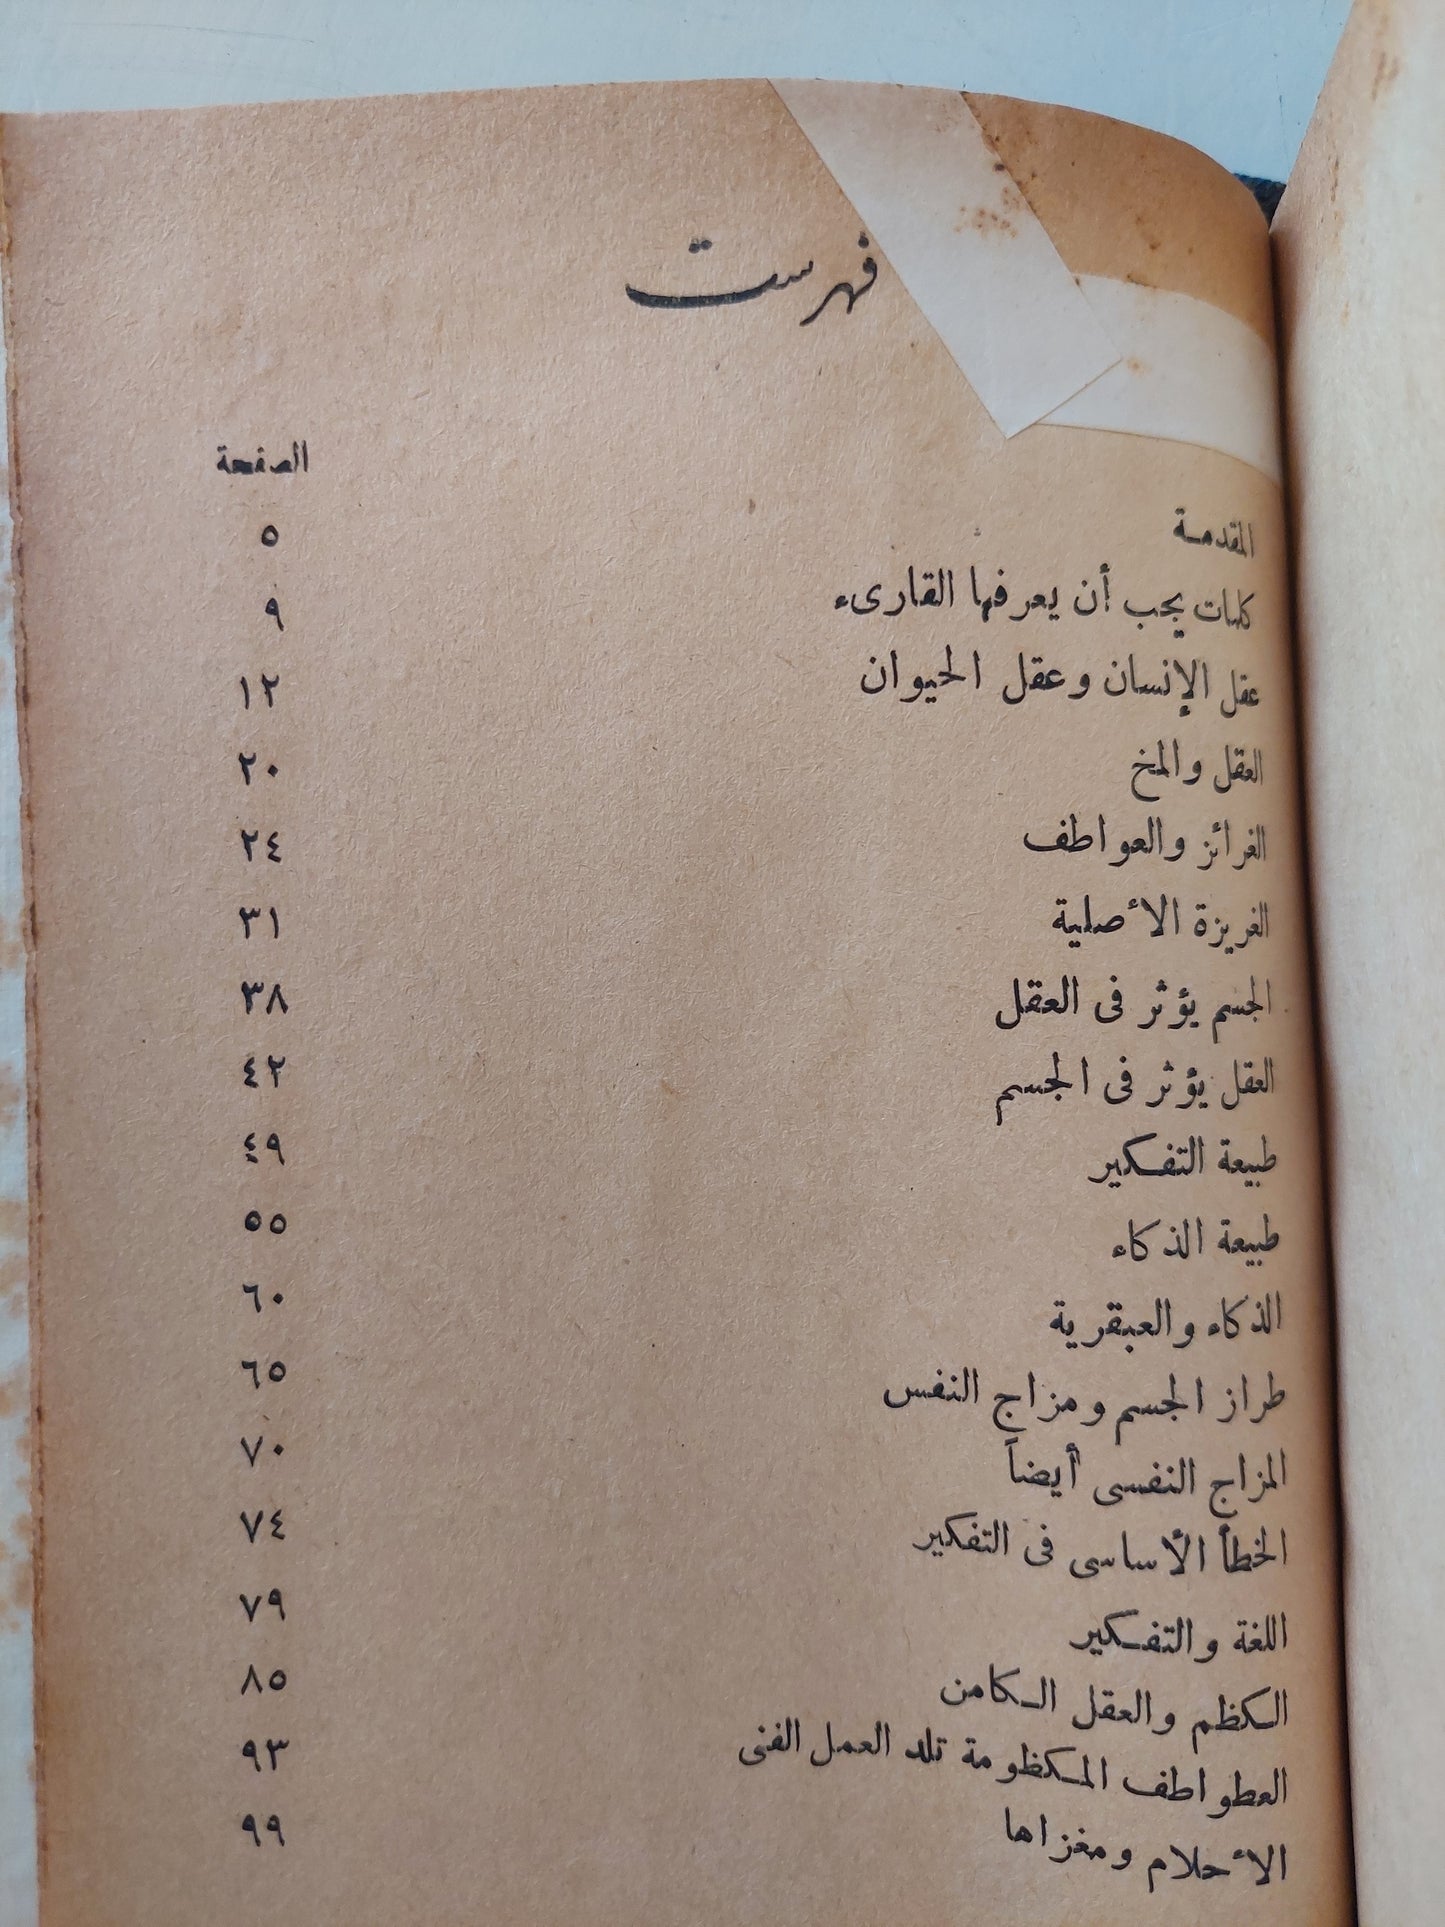 فهرست
الصفحة
المقدمة ٥
كلمات يجب أن يعرفها القارىء ٩
عقل الإنسان وعقل الحيوان ١٢
العقل والمخ ٢٠
الغرائز والعواطف ٢٤
الغريزة الأصلية ٣١
الجسم يؤثر فى العقل ٣٨
العقل يؤثر فى الجسم ٤٢
طبيعة التفكير ٤٩
طبيعة الذكاء ٥٥
الذكاء والعبقرية ٦٠
طراز الجسم ومزاج النفس ٦٥
المزاج النفسى أيضاً ٧٠
الخطأ الأساسى فى التفكير ٧٤
اللغة والتفكير ٧٩
الكظم والعقل الكامن ٨٥
العطواطف المكظومة تلد العمل الفنى ٩٣
الأحلام ومغزاها ٩٩